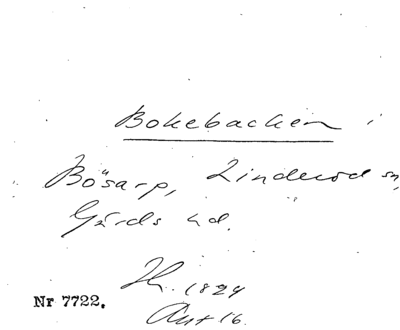 Bokebacken i
Bösarp, Linderöd sn,
Gärds hd.
H. 1824
Ant 16.
Nr 7722.